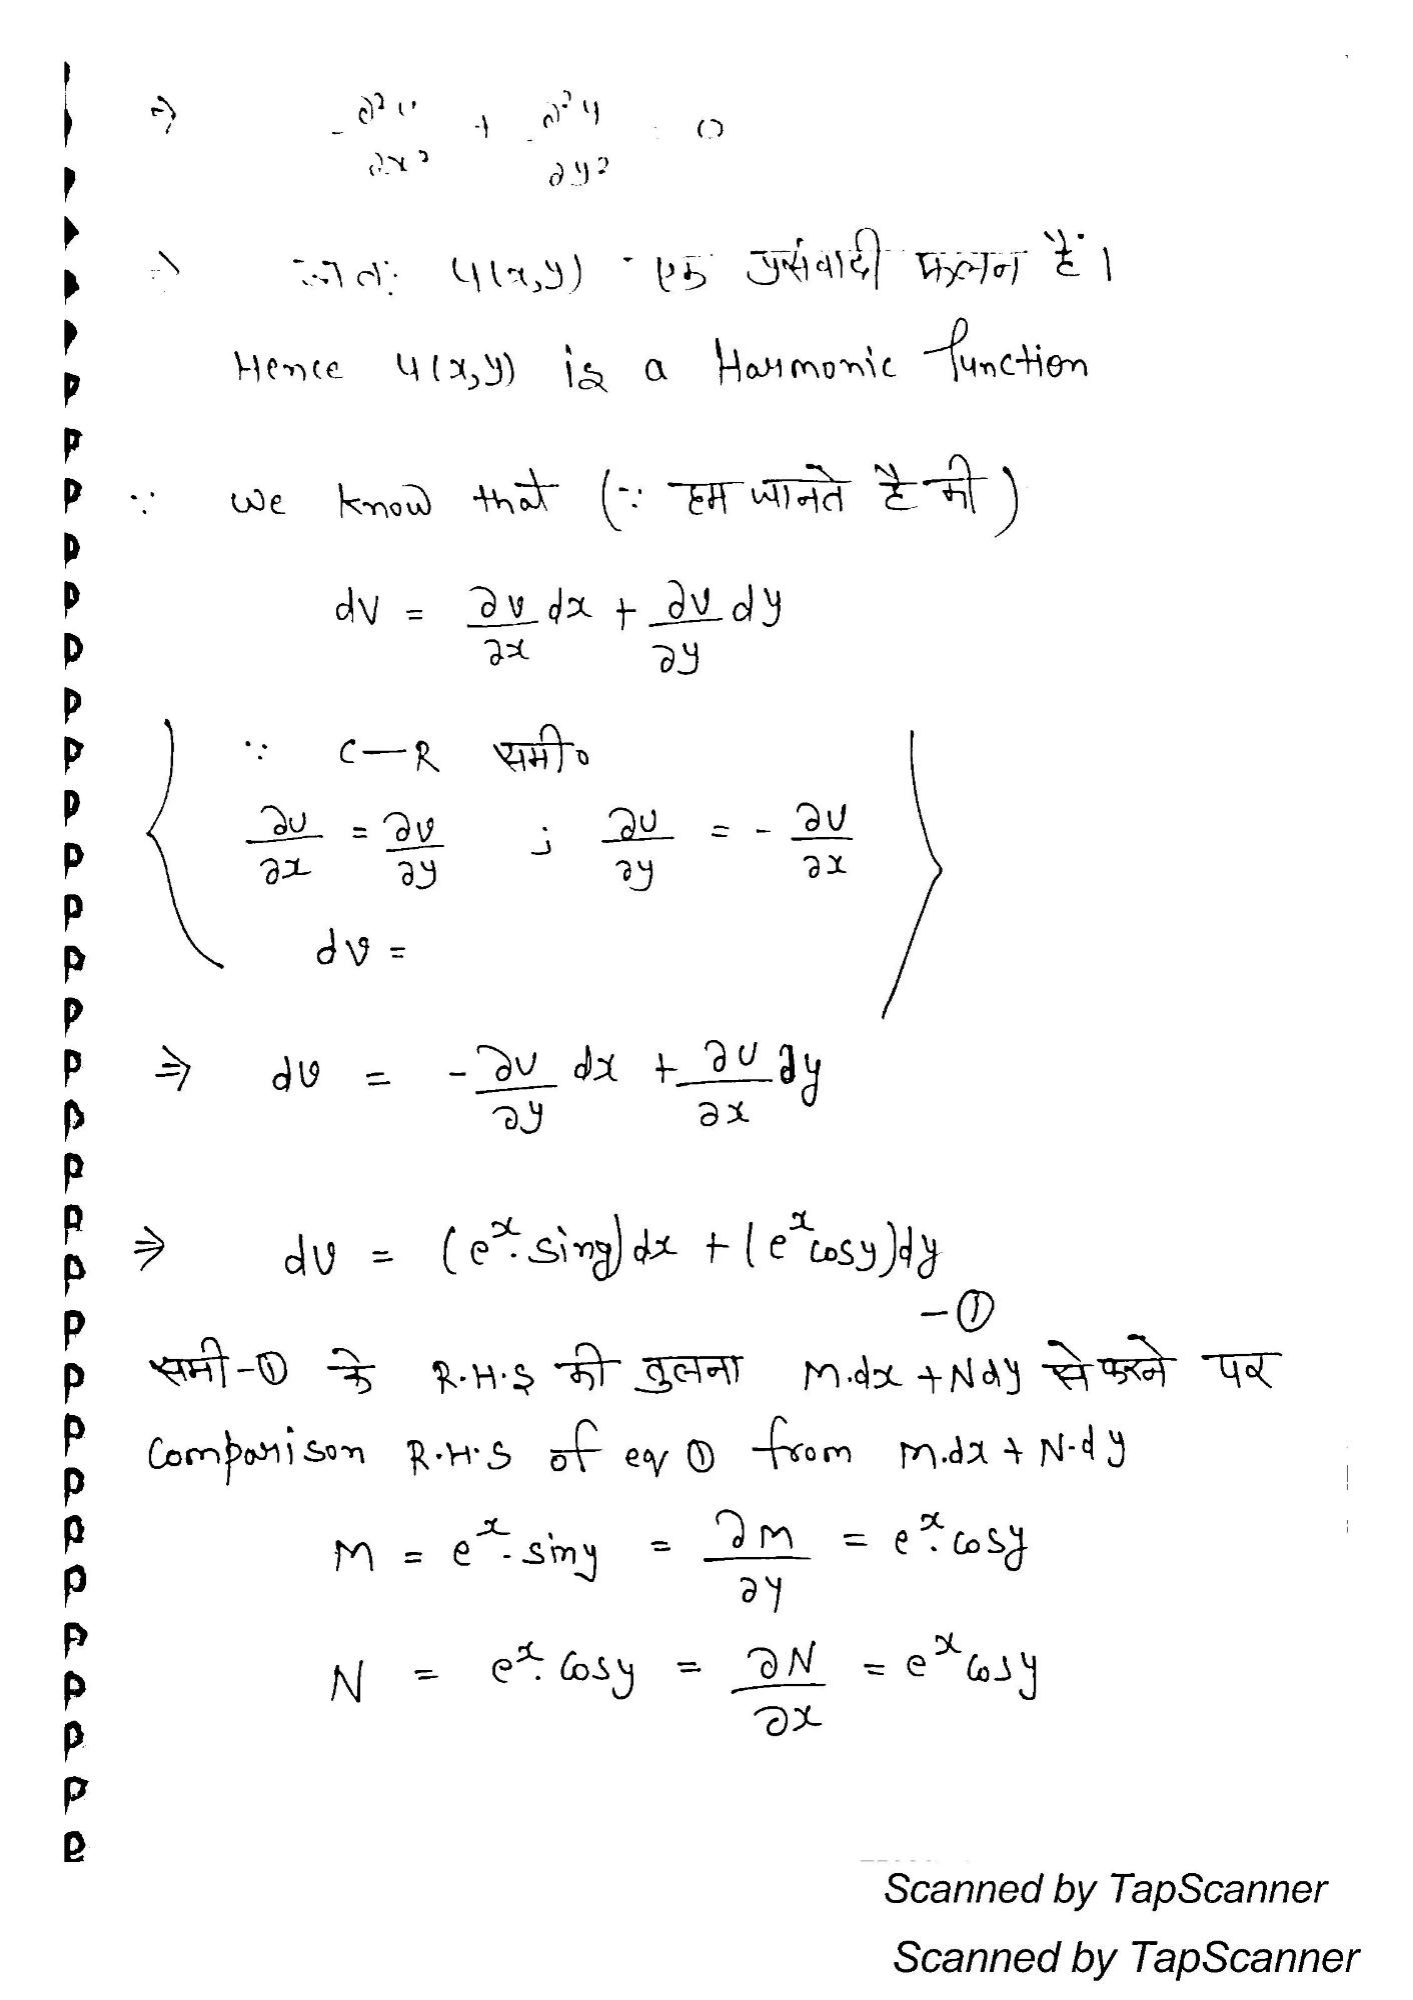 ⇒ ∂²u/∂x² + ∂²u/∂y² = 0
⇒ अतः u(x,y) एक प्रसंवादी फलन हैं।
Hence u(x,y) is a Harmonic function
∵ we know that (∵ हम जानते है की)
dv = ∂v/∂x dx + ∂v/∂y dy
∵ C—R समी०
∂u/∂x = ∂v/∂y ; ∂u/∂y = - ∂v/∂x
dv =
⇒ dv = - ∂u/∂y dx + ∂u/∂x dy
⇒ dv = (eˣ. siny)dx + (eˣ cosy)dy
- ①
समी-① के R.H.S की तुलना M.dx + Ndy से करने पर
Comparison R.H.S of eq ① from M.dx + N.dy
M = eˣ. siny = ∂M/∂y = eˣ. cosy
N = eˣ. cosy = ∂N/∂x = eˣ cosy
Scanned by TapScanner
Scanned by TapScanner